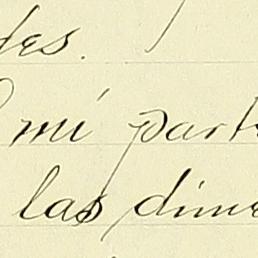 des.
mi part
las dime